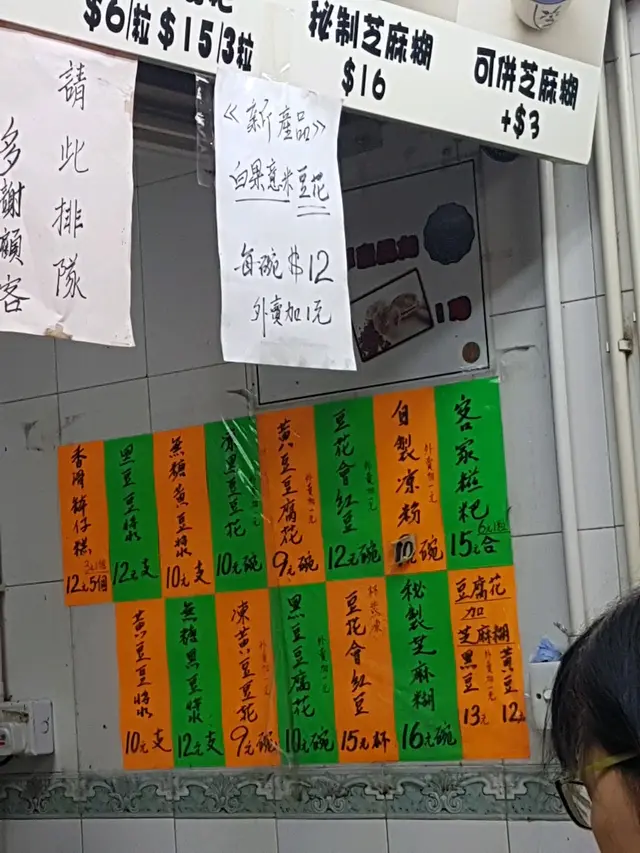 $6/粒 $15/3粒
秘制芝麻糊
$16
可併芝麻糊
+$3
請此排隊
多謝顧客
《新產品》
白果意米豆花
每碗 $12
外賣加1元
香滑缽仔糕
3元1個
12元5個
黑豆豆漿
12元支
無糖黃豆漿
10元支
凍黑豆豆花
10元碗
黃豆豆腐花
外賣加一元
9元碗
豆花會紅豆
外賣加一元
12元碗
自製涼粉
外賣加一元
10元碗
客家糍粑
6元1個
15元合
黃豆豆漿
10元支
無糖黑豆漿
12元支
凍黃豆豆花
外賣加一元
9元碗
黑豆豆腐花
外賣加一元
10元碗
豆花會紅豆
杯裝凍
15元杯
秘製芝麻糊
16元碗
豆腐花
加
芝麻糊
黑豆
13元
外賣加一元
黃豆
12元